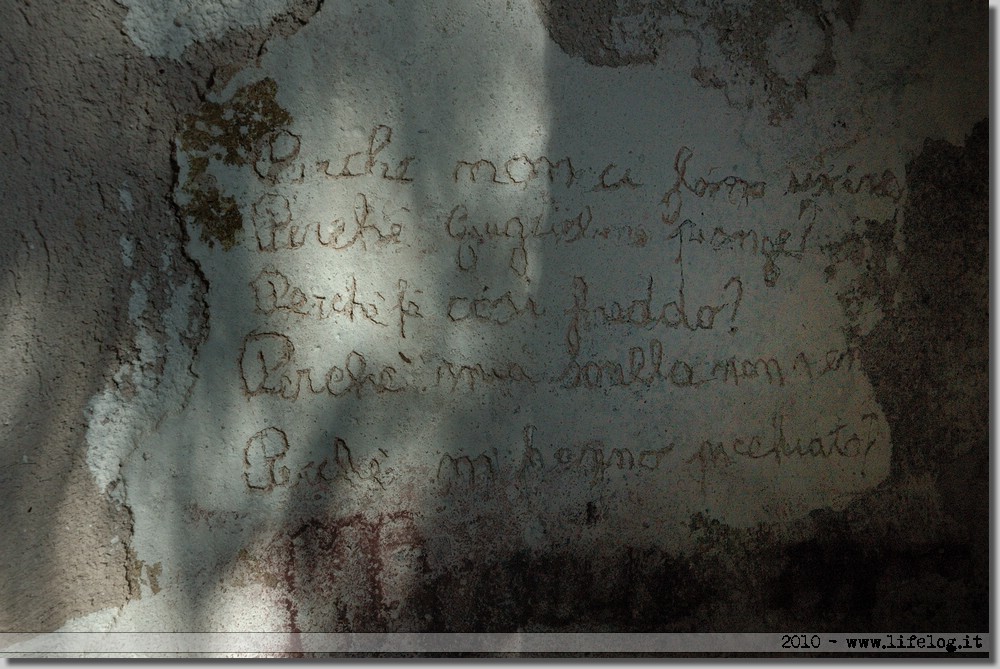 Perche non ci fano
Perchè piange?
Perchè fà cósi freddo?
Perchè mia sorella non
Perchè m'hanno picchiato?
2010 - www.lifelog.it